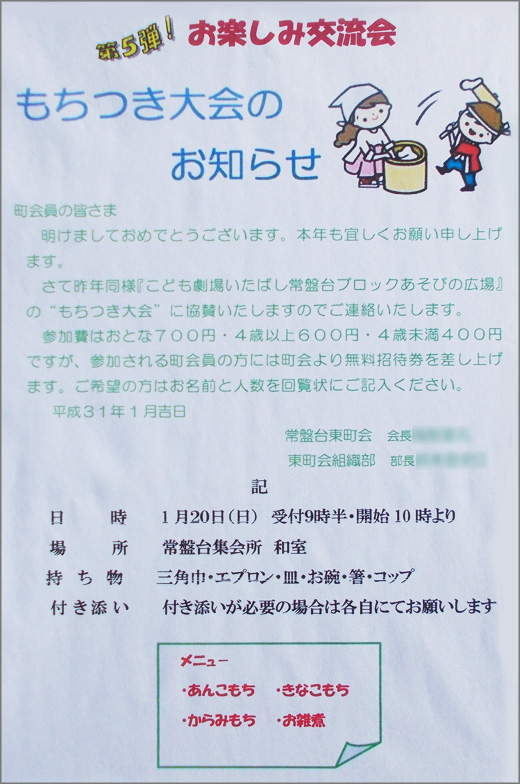 第5弾! お楽しみ交流会
もちつき大会の
お知らせ
町会員の皆さま
明けましておめでとうございます。本年も宜しくお願い申し上げ
ます。
さて昨年同様『こども劇場いたばし常盤台ブロックあそびの広場』
の“もちつき大会”に協賛いたしますのでご連絡いたします。
参加費はおとな700円・4歳以上600円・4歳未満400円
ですが、参加される町会員の方には町会より無料招待券を差し上げ
ます。ご希望の方はお名前と人数を回覧状にご記入ください。
平成31年1月吉日
常盤台東町会 会長
東町会組織部 部長
記
日時 1月20日(日) 受付9時半・開始10時より
場所 常盤台集会所 和室
持ち物 三角巾・エプロン・皿・お碗・箸・コップ
付き添い 付き添いが必要の場合は各自にてお願いします
メニュー
・あんこもち ・きなこもち
・からみもち ・お雑煮